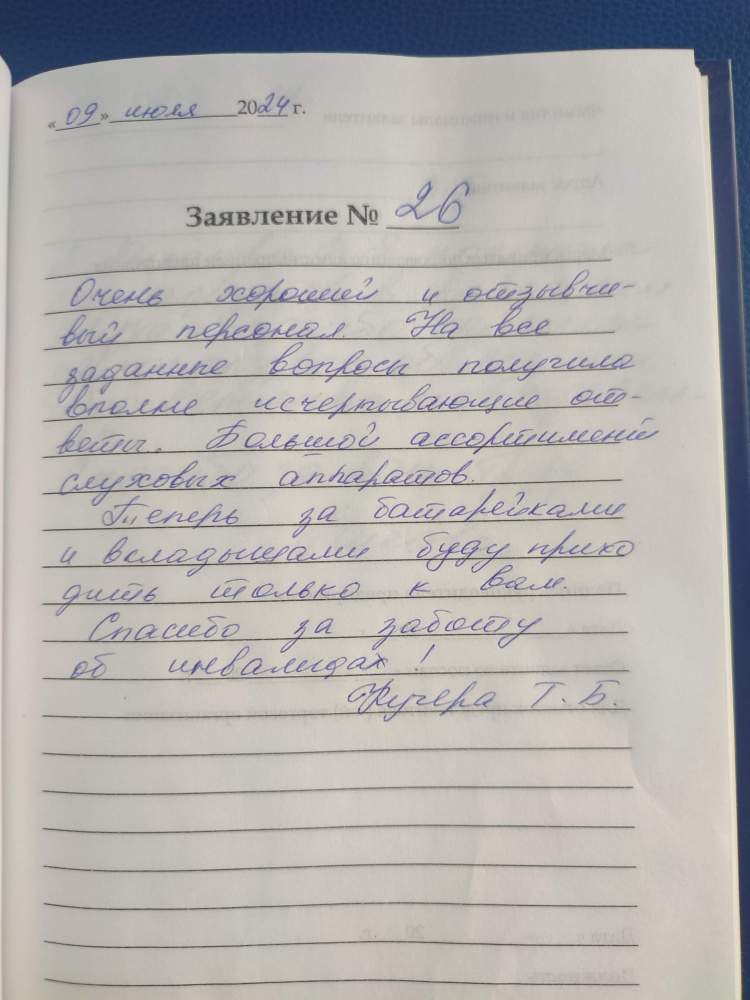 « 09 » июля 2024 г.
Заявление № 26
Очень хороший и отзывчи-
вый персонал. На все
заданные вопросы получила
вполне исчерпывающие от-
веты. Большой ассортимент
слуховых аппаратов.
Теперь за батарейками
и вкладышами буду прихо
дить только к вам.
Спасибо за заботу
об инвалидах!
Кучера Т. Б.